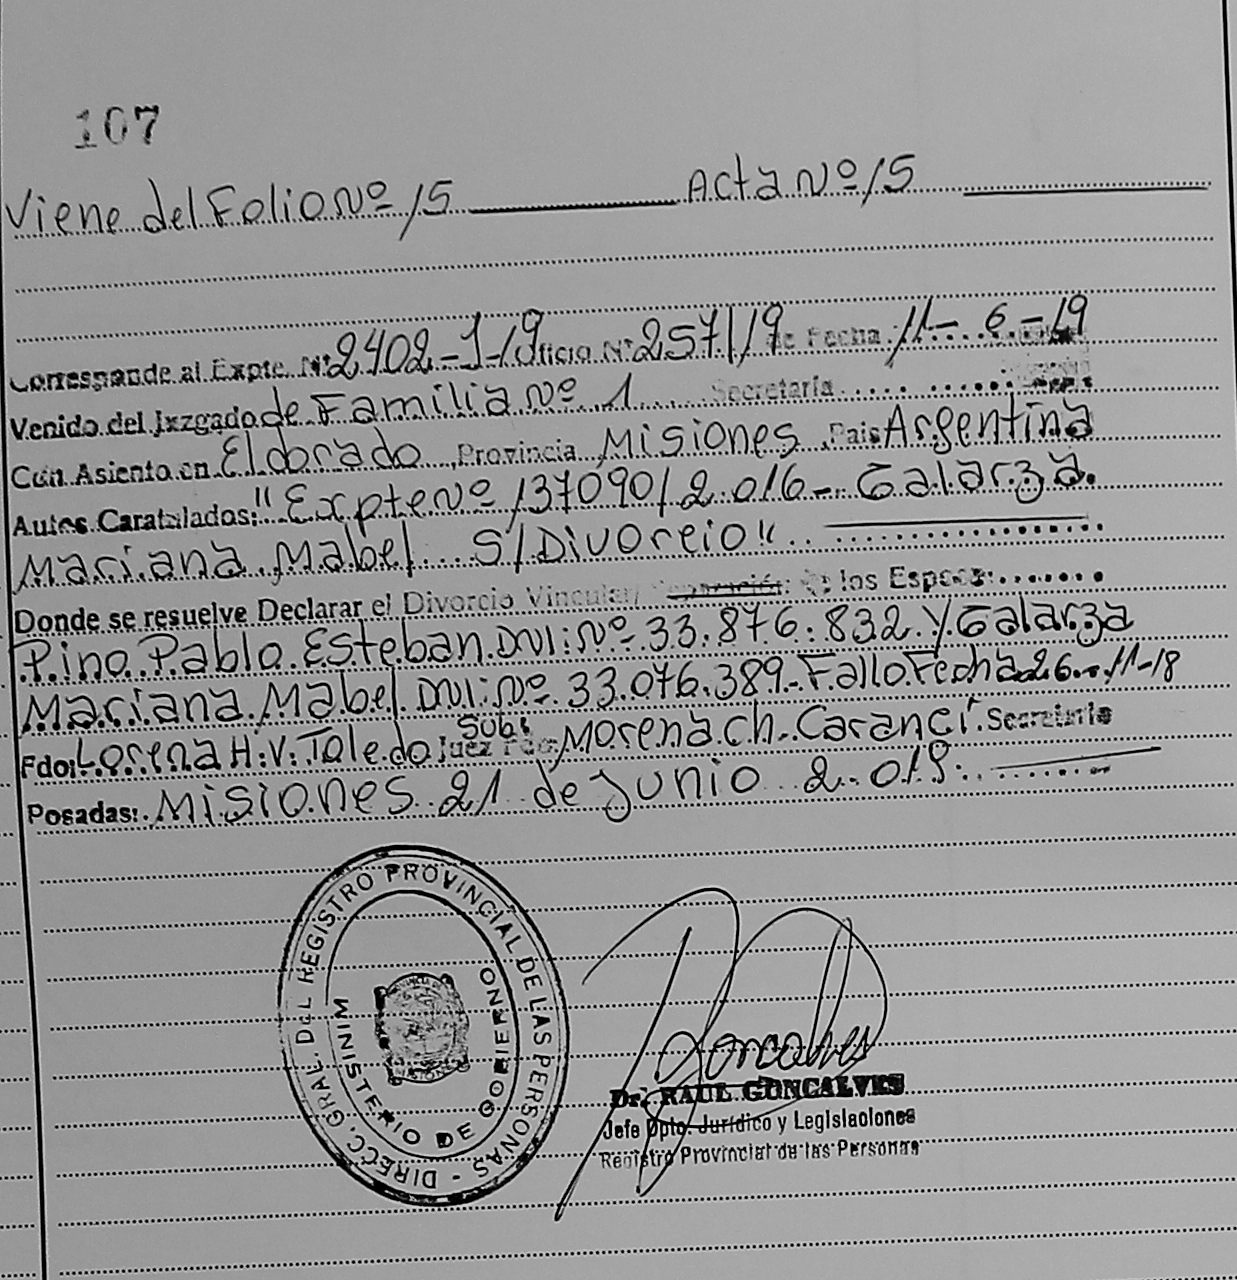 107
Viene del Folio Nº 15 Acta Nº 15
Corresponde al Expte. Nº 2402-1-19 Oficio Nº 257/19 de Fecha 11-6-19
Venido del Juzgado de Familia Nº 1 Secretaria
Con Asiento en Eldorado Provincia Misiones Pais Argentina
Autos Caratulados: "Expte Nº 137090/2.016- Galarza
Mariana Mabel S/Divorcio"
Donde se resuelve Declarar el Divorcio Vincular/ Separación: de los Esposos:
Pino Pablo Esteban DNI: Nº 33.876.832 y Galarza
Mariana Mabel DNI: Nº 33.076.389- Fallo Fecha 26-11-18
Fdo: Lorena H. V. Toledo Juez Fdo. Subr Morena ch. Caranci Secretario
Posadas: Misiones 21 de Junio 2.019.
DIRECC. GRAL. DEL REGISTRO PROVINCIAL DE LAS PERSONAS -
MINISTERIO DE GOBIERNO
Goncalves
Dr. RAUL GONCALVES
Jefe Dpto. Jurídico y Legislaciones
Registro Provincial de las Personas